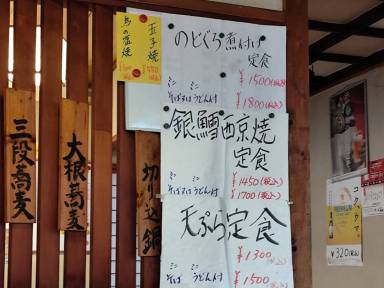 のどぐろ煮付け
定食
￥1500(税込)
ミニ
そば又はうどん付
￥1800(税込)
銀鱈西京焼
定食
￥1450(税込)
ミニ
そば又はうどん付
1700(税込)
天ぷら定食
￥1300(税込)
ミニ
そば うどん付
￥1500(税込)
玉子焼
￥550
鳥の塩焼
三段蕎麦
大根蕎麦
切り込
コクカマ。
￥320(税込)